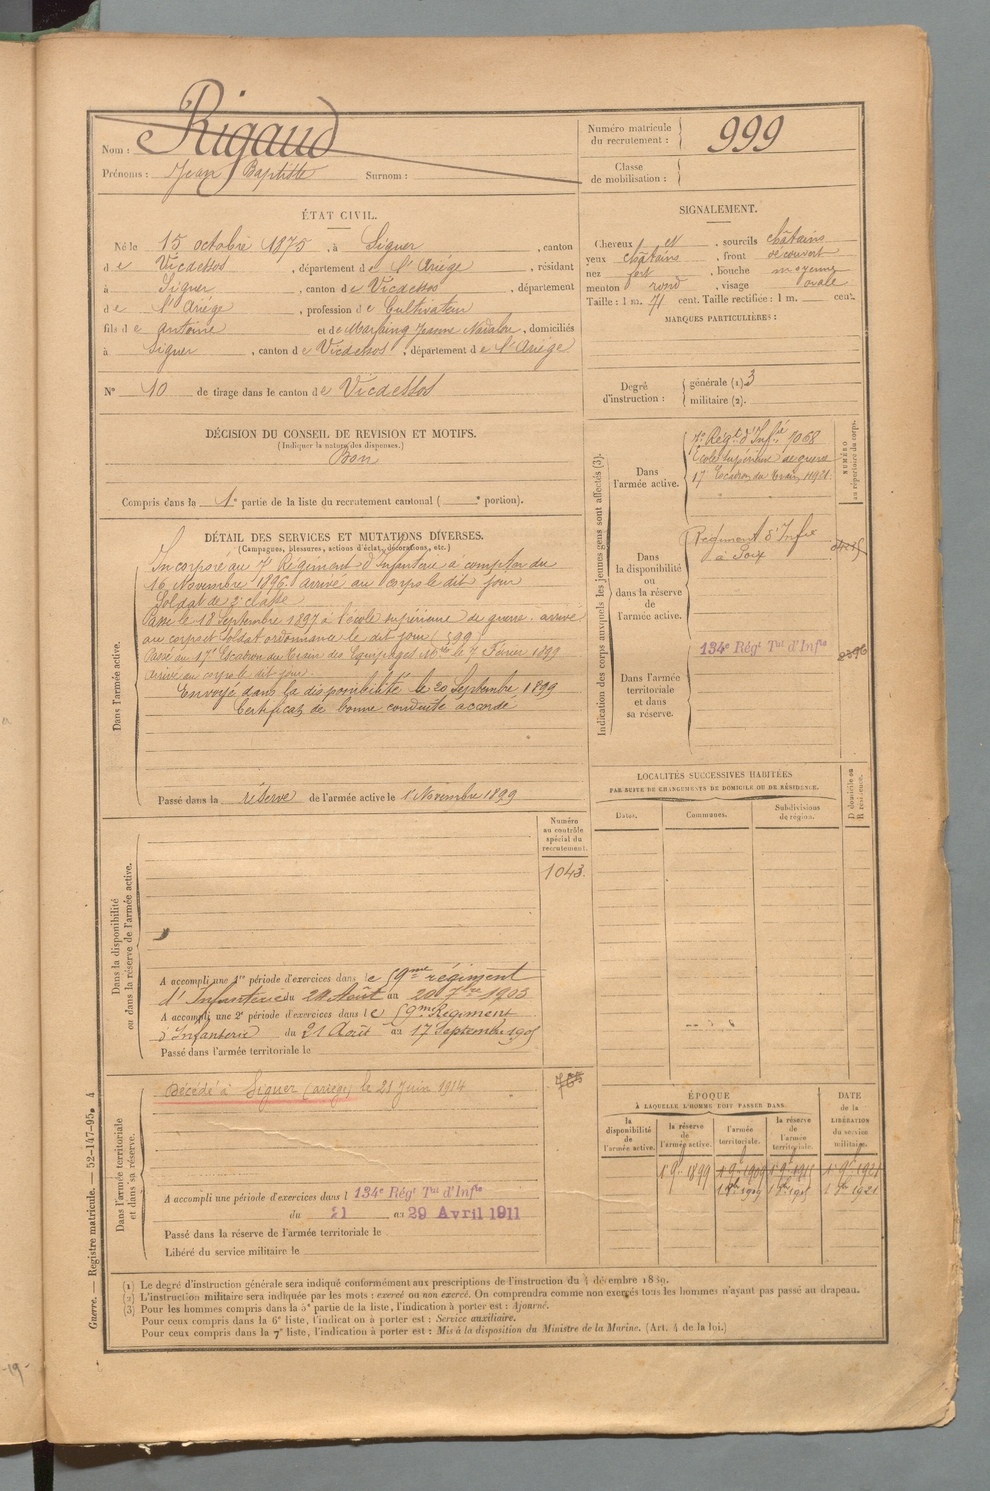 Nom : Rigaud
Prénoms : Jean Baptiste Surnom :
Numéro matricule du recrutement : 999
Classe de mobilisation :
ÉTAT CIVIL.
Né le 15 octobre 1875, à Siguer, canton
de Vicdessos, département de l'Ariége, résidant
à Siguer, canton de Vicdessos, département
de l'Ariége, profession de Cultivateur
fils de antoine et de Marfaing Jeanne, domiciliés
à Siguer, canton de Vicdessos, département de l'Ariége
N° 10 de tirage dans le canton de Vicdessos
SIGNALEMENT.
Cheveux et, sourcils châtains
yeux chatains, front découvert
nez fort, bouche moyenne
menton rond, visage ovale
Taille : 1 m. 71 cent. Taille rectifiée : 1 m. cent.
MARQUES PARTICULIÈRES :
Degré d'instruction : générale (1) 3
militaire (2).
DÉCISION DU CONSEIL DE REVISION ET MOTIFS.
(Indiquer la nature des dispenses.)
Bon
Compris dans la 1e partie de la liste du recrutement cantonal ( e portion).
DÉTAIL DES SERVICES ET MUTATIONS DIVERSES.
(Campagnes, blessures, actions d'éclat, décorations, etc.)
Dans l'armée active.
Incorporé au 7e Régiment d'Infanterie à compter du
16 Novembre 1896. Arrivé au corps le dit jour
Soldat de 2e classe
Passé le 18 Septembre 1897 à l'école supérieure de guerre. arrivé
au corps et Soldat ordonnance le dit jour
Passé au 17e Escadron du Train des Equipages Mres le 7 Février 1899
arrivé au corps le dit jour.
Envoyé dans la disponibilité le 20 Septembre 1899
Certificat de bonne conduite accordé
Passé dans la réserve de l'armée active le 1 Novembre 1899
Indication des corps auxquels les jeunes gens sont affectés (3).
NUMÉRO au répertoire du corps.
Dans l'armée active.
7e Régt d'Infie 7068
Ecole Supérieure de guerre
17e Escadron du Train 11921
Dans la disponibilité ou dans la réserve de l'armée active.
Régiment d'Infie
à Foix
Dans l'armée territoriale et dans sa réserve.
134e Régt Tal d'Infie
LOCALITÉS SUCCESSIVES HABITÉES
PAR SUITE DE CHANGEMENTS DE DOMICILE OU DE RÉSIDENCE.
Dates. Communes. Subdivisions de région. D domicile ou R résidence.
Dans la disponibilité ou dans la réserve de l'armée active.
Numéro au contrôle spécial du recrutement.
1043
A accompli une 1re période d'exercices dans le 59me régiment
d'Infanterie du 24 Août au 20 7bre 1903
A accompli une 2e période d'exercices dans le 59me Régiment
d'Infanterie du 21 Août au 17 Septembre 1905
Passé dans l'armée territoriale le
Dans l'armée territoriale et dans sa réserve.
Décédé à Siguer (ariege) le 21 Juin 1914
A accompli une période d'exercices dans l 134e Régt Tal d'Infie
du 21 au 29 Avril 1911
Passé dans la réserve de l'armée territoriale le
Libéré du service militaire le
ÉPOQUE
À LAQUELLE L'HOMME DOIT PASSER DANS.
la disponibilité de l'armée active. la réserve de l'armée active. l'armée territoriale. la réserve de l'armée territoriale.
DATE de la LIBÉRATION du service militaire.
1 9bre 1899 1 9bre 1909 1 9bre 1915 1 9bre 1921
(1) Le degré d'instruction générale sera indiqué conformément aux prescriptions de l'instruction du 4 décembre 1889.
(2) L'instruction militaire sera indiquée par les mots : exercé ou non exercé. On comprendra comme non exercés tous les hommes n'ayant pas passé au drapeau.
(3) Pour les hommes compris dans la 5e partie de la liste, l'indication à porter est : Ajourné.
Pour ceux compris dans la 6e liste, l'indication à porter est : Service auxiliaire.
Pour ceux compris dans la 7e liste, l'indication à porter est : Mis à la disposition du Ministre de la Marine. (Art. 4 de la loi.)
Guerre. — Registre matricule. — 52-147-95. 4